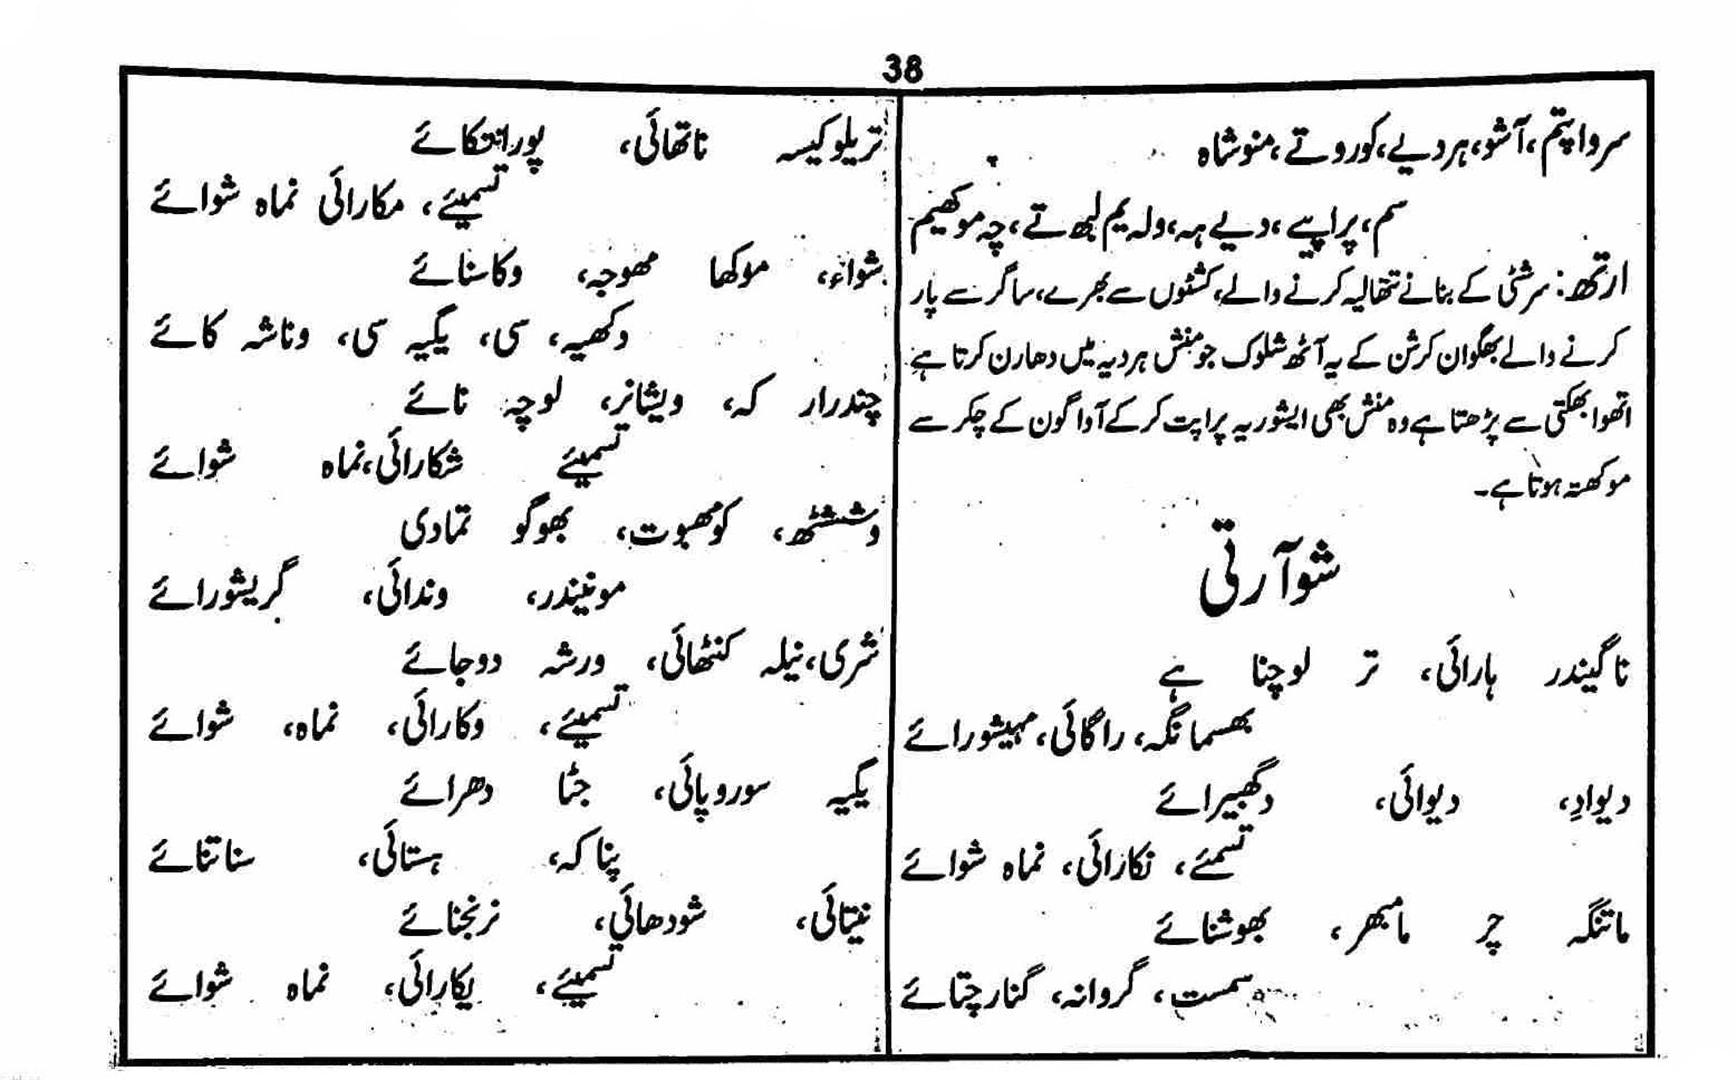 38
سرواپتم، آشو، ہردیے، کوروتے، منوشاہ
سم، پراپیے، دیے ہہ، ولہ یم لبھ تے، چہ موکھیم
ارتھ: سرشٹی کے بنانے تتھا لیہ کرنے والے، کشٹوں سے بھرے، ساگر سے پار
کرنے والے بھگوان کرشن کے یہ آٹھ شلوک جو منش ہردیہ میں دھارن کرتا ہے
اتھوا بھکتی سے پڑھتا ہے وہ منش بھی ایشوریہ پراپت کر کے آواگون کے چکر سے
موکھتہ ہوتا ہے۔
شو آرتی
ناگیندر ہارائی، تر لوچنا ہے
بھسمانگہ، راگائی، مہیشورائے
دیوادِ، دیوائی، دگھبیرائے
تسمئے، نکارائی، نماہ شوائے
ماتنگہ چر مامبھر، بھوشنائے
سمست، گروانہ، گنارچتائے
تریلوکیسہ ناتھائی، پورانتکائے
تسمیئے، مکارائی نماہ شوائے
شواء، موکھا مھوجہ، وکاسنائے
دکھیہ، سی، یگیہ سی، وناشہ کائے
چندرار کہ، ویشانر، لوچہ نائے
تسمیئے شکارائی، نماہ شوائے
وششٹھ، کومھبوت، بھوگو تمادی
مونیندر، وندائی، گریشورائے
شری، نیلہ کنٹھائی، ورشہ دوجائے
تسمیئے، وکارائی، نماہ، شوائے
یگیہ سوروپائی، جٹا دھرائے
پناکہ، ہستائی، سناتنائے
نیتائی، شودھائی، نرنجنائے
تسمیئے، یکارائی، نماہ شوائے